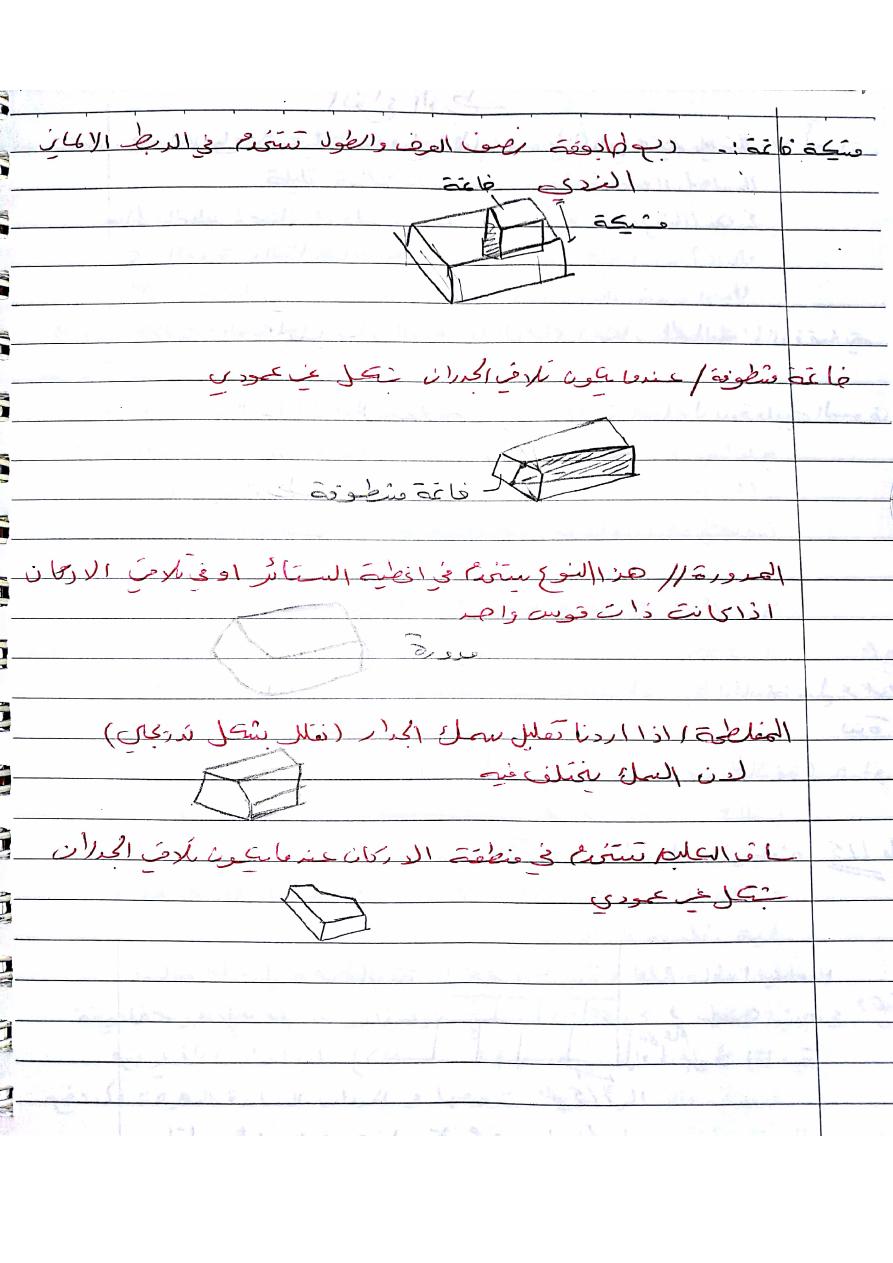 متيكة خاغة :. ربع طابوقة نصف العرض والطول تستخدم في الربط الالماني
الفردي
خاغة
متيكة
خاغة مشطوفة / عندما يكون تلاقي الجدران بشكل غير عمودي
خاغة مشطوفة
المدورة // هذا النوع يستخدم في اغطية الستائر او في تلاقي الاركان
اذا كانت ذات قوس واحد
مدورة
المفلطحة / اذا اردنا تقليل سمك الجدار (نقلل بشكل تدريجي)
لان السمك يختلف فيه
ساق الكلب / تستخدم في منطقة الاركان عندما يكون تلاقي الجدران
بشكل غير عمودي